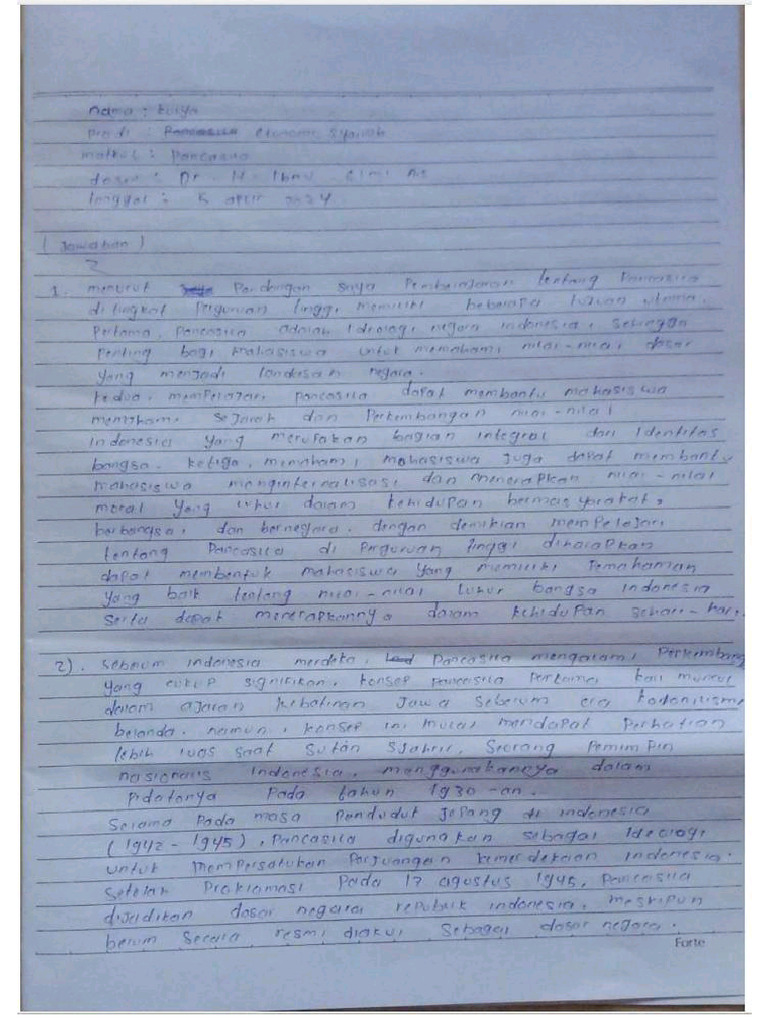 nama : Surya
prodi : Pancasila ekonomi syariah
matkul : Pancasila
dosen : Dr. H. Ibnu
tanggal : 5 april 2024
(Jawaban)
1. menurut Pandangan saya Pembelajaran tentang Pancasila
di tingkat Perguruan tinggi memiliki beberapa tujuan utama.
Pertama, Pancasila adalah Ideologi negara indonesia, sehingga
Penting bagi mahasiswa untuk memahami nilai-nilai dasar
yang menjadi landasan negara.
kedua, mempelajari pancasila dapat membantu mahasiswa
memahami sejarah dan Perkembangan nilai-nilai
indonesia yang merupakan bagian integral dari Identitas
bangsa. ketiga, memahami mahasiswa juga dapat membantu
mahasiswa menginternalisasi dan menerapkan nilai-nilai
moral yang luhur dalam kehidupan bermasyarakat,
berbangsa, dan bernegara. dengan demikian mempelajari
tentang Pancasila di Perguruan tinggi diharapkan
dapat membentuk mahasiswa yang memiliki Pemahaman
yang baik tentang nilai-nilai luhur bangsa indonesia
serta dapat menerapkannya dalam kehidupan sehari-hari.
2). sebelum indonesia merdeka, Pancasila mengalami Perkembang
yang cukup signifikan, konsep pancasila Pertama kali muncul
dalam ajaran kebatinan Jawa sebelum era kolonilisme
belanda. namun, konsep ini mulai mendapat Perhatian
lebih luas saat Sutan Sjahrir, Seorang Pemimpin
nasionalis indonesia, menggunakannya dalam
Pidatonya Pada tahun 1930-an.
Selama Pada masa Penduduk Jepang di indonesia
(1942-1945), Pancasila digunakan sebagai Ideologi
untuk memPersatukan Perjuangan kemerdekaan indonesia.
Setelah Proklamasi Pada 17 agustus 1945, Pancasila
dijadikan dasar negara republik indonesia, meskipun
belum secara resmi diakui sebagai dasar negara.
Forte